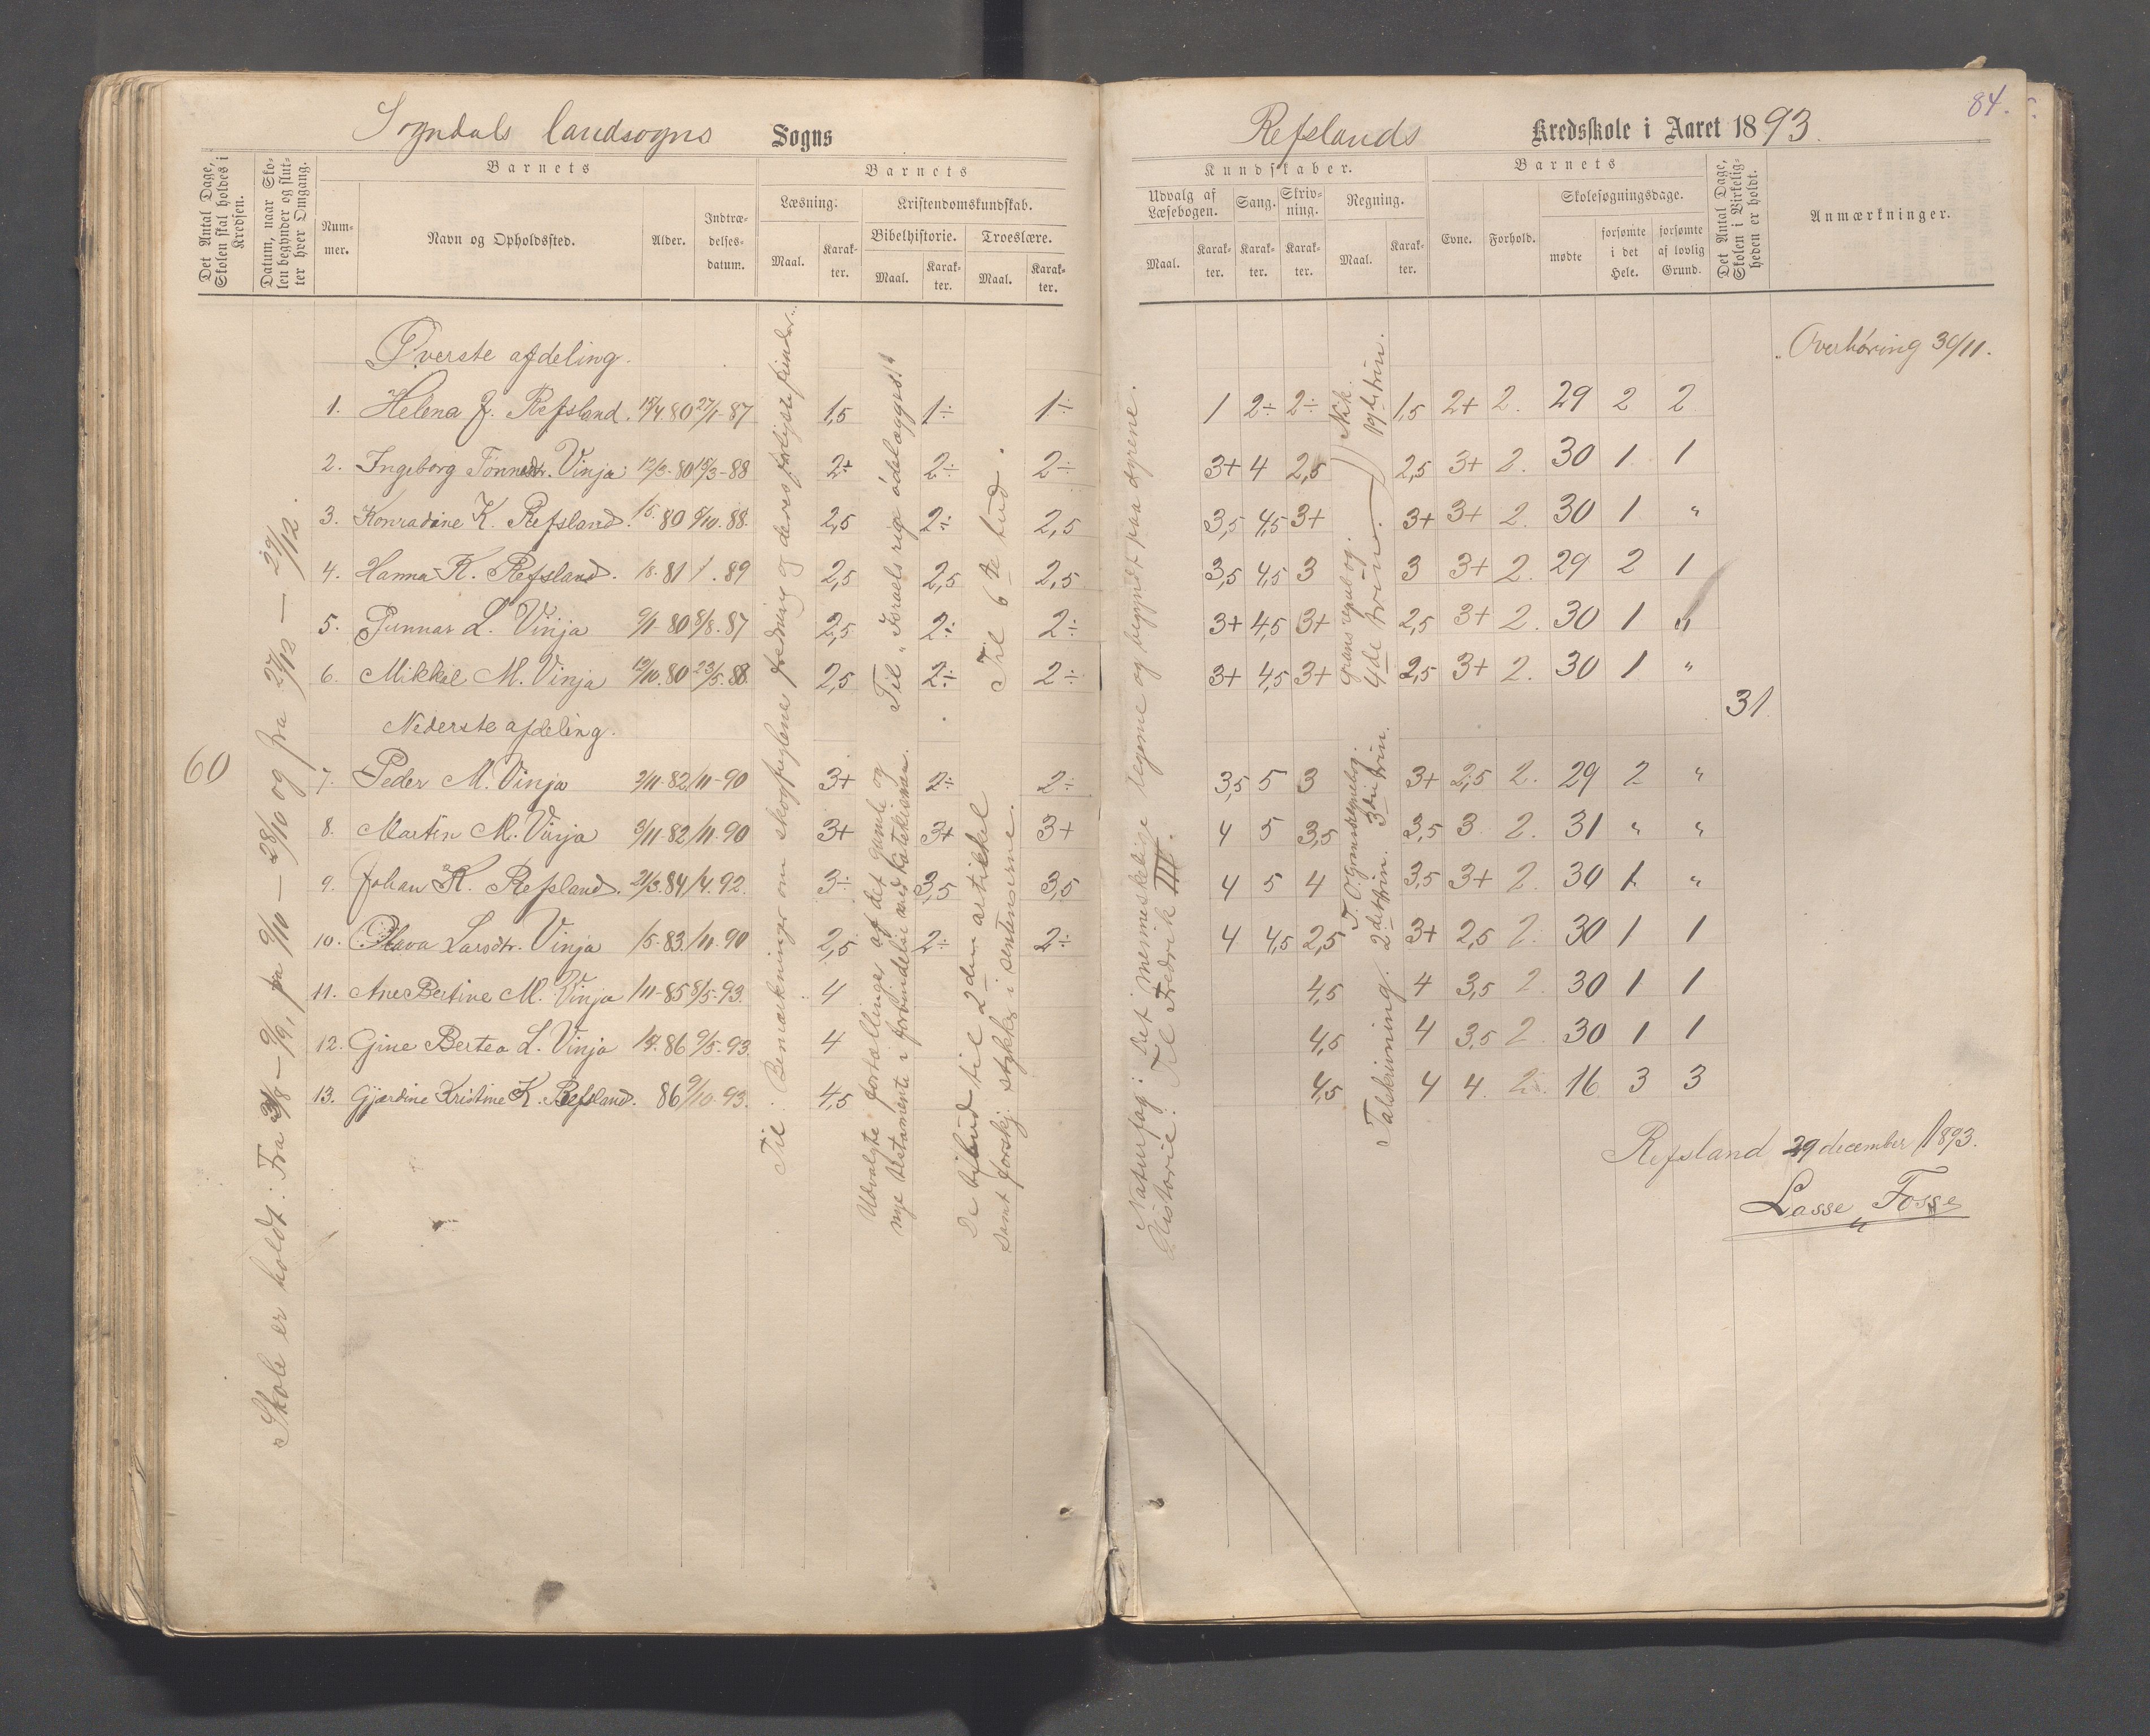 Sogndals landsogns Sogns
Det Antal Dage, Skolen skal holdes i Kredsen.
Datum, naar Skolen begynder og slutter hver Omgang.
Barnets
Nummer.
Navn og Opholdssted.
Alder.
Indtrædelsesdatum.
Barnets
Læsning.
Maal.
Karakter.
Kristendomskundskab.
Bibelhistorie.
Maal.
Karakter.
Troeslære.
Maal.
Karakter.
60
Skole er holdt: Fra 31/8 — 9/9, fra 9/10 — 28/10 og fra 27/12 — 29/12.
Øverste afdeling.
1. Helena J. Refsland. 15/4 80 27/1-87 1,5 1÷ 1÷
2. Ingeborg Tønnesdtr. Vinja 12/3-80 15/3-88 2÷ 2÷ 2÷
3. Konradine K. Refsland. 15. 80 9/10. 88. 2,5 2÷ 2,5
4. Hanna K. Refsland. 18. 81 / . 89 2,5 2,5 2,5
5. Gunnar L. Vinja 9/1-80 8/8. 87 2,5 2÷ 2÷
6. Mikkel M. Vinja 12/10. 80 23/5. 88. 2,5 2÷ 2÷
Nederste afdeling.
7. Peder M. Vinja 2/11-82 /11-90 3+ 2÷ 2÷
8. Martin M. Vinja 3/11-82 /11. 90 3+ 3+ 3+
9. Johan K. Refsland. 21/3. 84 /4. 92. 3÷ 3,5 3,5
10. Olava Larsdtr. Vinja /5-83 /11. 90 2,5 2÷ 2÷
11. Ane Bertine M. Vinja /11-85 8/5-93. 4
12. Gine Bertea L. Vinja 14. 86 9/5. 93. 4
13. Gjærdine Kristine K. Refsland. 86 9/10. 93. 4,5
Til Bemærkninger om skogfuglene fredning og deres farligste fiender.
Til "Israels rige ødelægges"!
Udvalgte fortællinger af det gamle og
nye testamente i forbindelse med katekismen.
Til 6te bud.
De ti bud til 2den artikkel
samt forskj. stykker i sentenserne.
Refslands Kredsskole i Aaret 1893.
84.
Kundskaber.
Udvalg af Læsebogen.
Maal.
Karakter.
Sang.
Karakter.
Skrivning.
Karakter.
Regning.
Maal.
Karakter.
Barnets
Evne.
Forhold.
Skolesøgningsdage.
mødte
forsømte i det Hele.
forsømte af lovlig Grund.
Det Antal Dage, Skolen i Virkeligheden er holdt.
Anmærkninger.
Overhøring 30/11.
1 2÷ 2÷ 1,5 2+ 2. 29 2 2
3+ 4 2,5 2,5 3+ 2. 30 1 1
3,5 4,5 3+ 3+ 3+ 2. 30 1 "
3,5 4,5 3 3 3+ 2. 29 2 1
3+ 4,5 3+ 2,5 3+ 2. 30 1 "
3+ 4,5 3+ 2,5 3+ 2. 30 1 "
31
3,5 5 3 3+ 2,5 2. 29 2 "
4 5 3,5 3,5 3 2. 31 " "
4 5 4 3,5 3+ 2. 30 1. "
4 4,5 2,5 3+ 2,5 2. 30 1 1
4,5 4 3,5 2. 30 1 1
4,5 4 3,5 2 30 1 1
4,5 4 4. 2. 16 3 3
Naturfag: Det menneskelige legeme og begyndt paa dyrene.
Historie: Til Fredrik III.
4de trin.
3die trin.
Talskrivning. 2det trin.
Refsland 29 december 1893.
Lasse Fosse